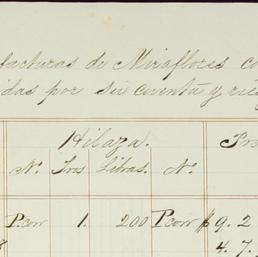 facturas de Miraflores co
idas por su cuenta y rie
Hilaza. Pr
Nº. Trs. Libras. Nº.
P. corr 1. 200 P. corr $9. 2
4. 7.